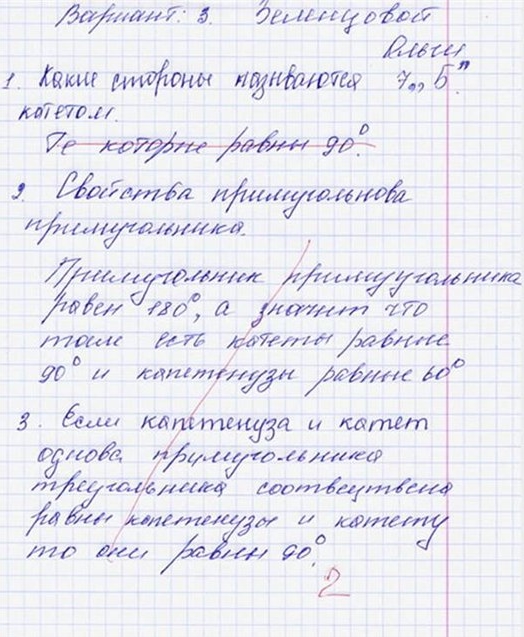 Вариант: 3. Зеленцовой
Ольги
1. Какие стороны називаются 7„Б"
катетом.
Те которые равны 90°.
2. Свойства примуголькова
примуголькика.
Примугольник примуугольника
равен 180°, а значит что
там есть катеты равные
90° и капетенузы равные 60°
3. Если капетенуза и катет
однова прумугольника
треугольника соотвецтвена
равны капетенузы и катету
то они равны 90°.
2